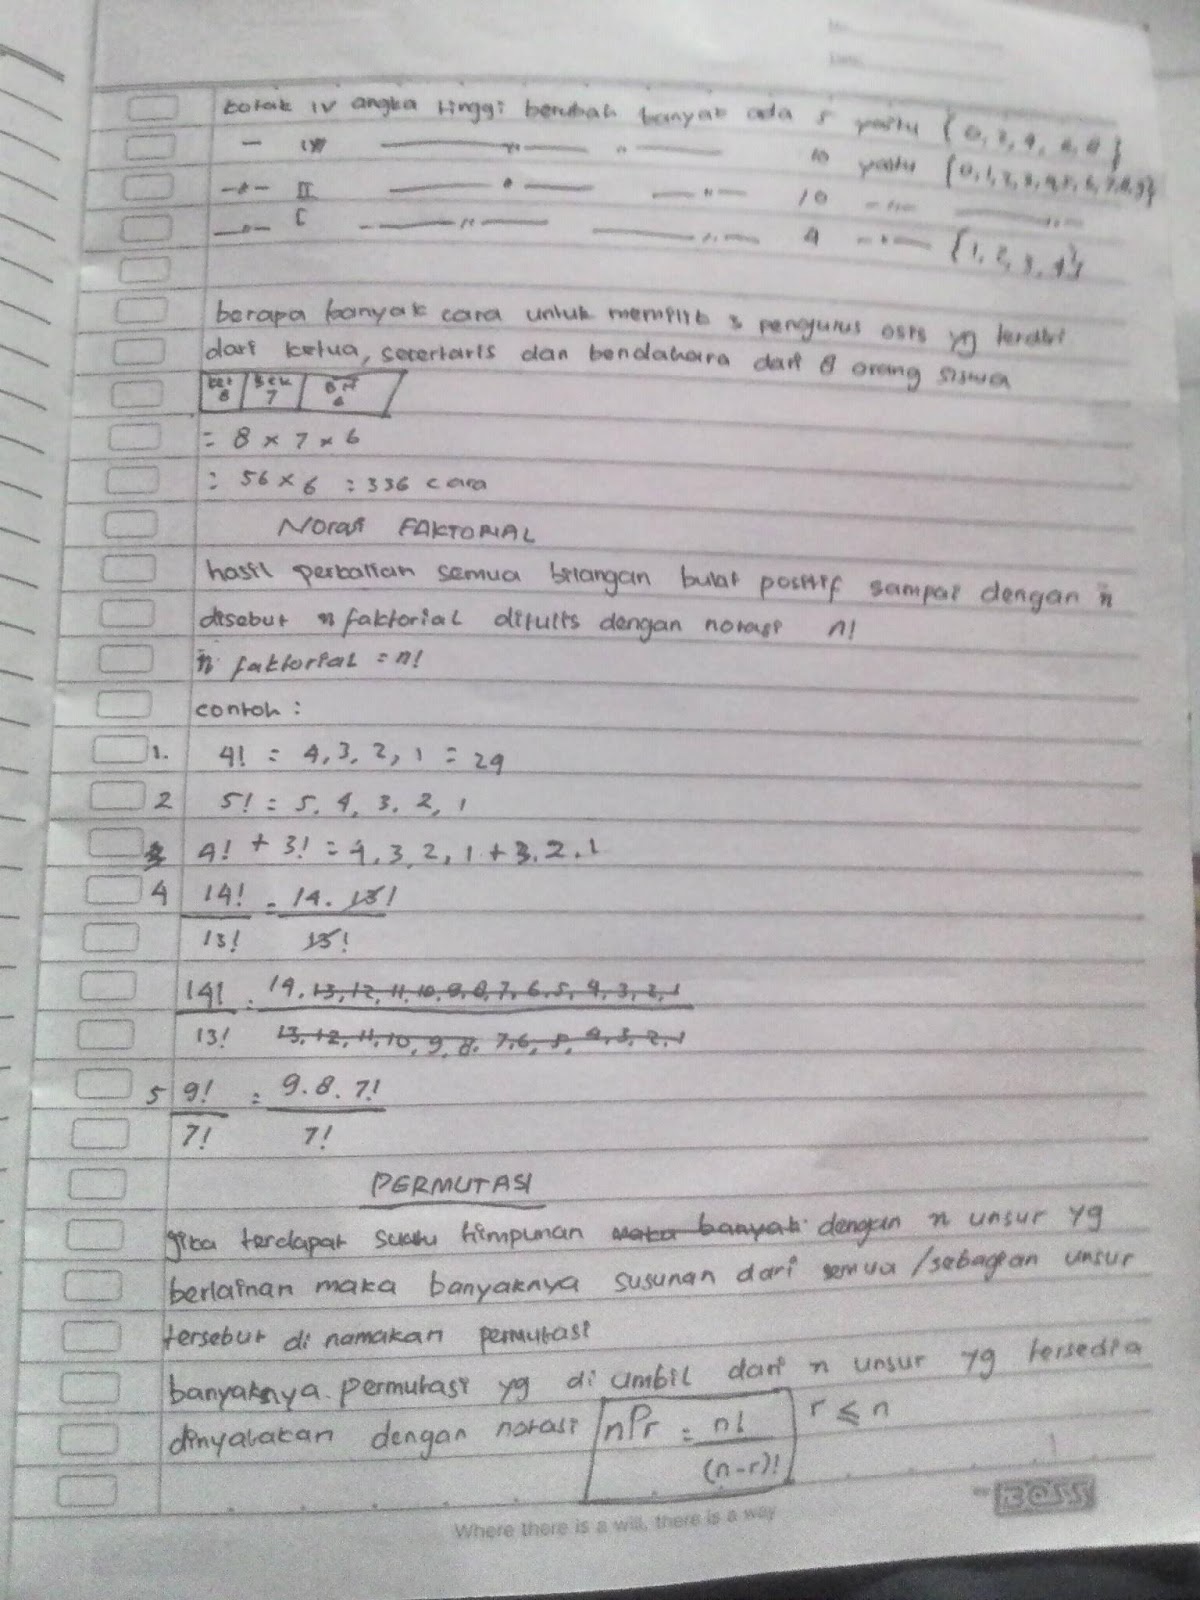 kotak IV angka tinggi berubah banyak ada 5 yaitu { 0, 2, 4, 6, 8 }
— III —— " —— " —— 10 yaitu {0,1,2,3,4,5,6,7,8,9}
—"— II —— " —— —"— 10 —"— —— "—
—"— I —— " —— —— "— 4 —"— {1, 2, 3, 4}
berapa banyak cara untuk memilih 3 pengurus osis yg terdiri
dari ketua, secertaris dan bendahara dari 8 orang siswa
ket sek
8 7 6
= 8 × 7 × 6
= 56 × 6 = 336 cara
Notasi FAKTORIAL
hasil perkalian semua bilangan bulat positif sampai dengan n
disebut n faktorial ditulis dengan notasi n!
n faktorial = n!
contoh :
1. 4! = 4, 3, 2, 1 = 24
2 5! = 5. 4, 3. 2, 1
3 4! + 3! = 4, 3, 2, 1 + 3. 2. 1
4 14! = 14. 13!
13! 13!
14! = 14. 13, 12, 11, 10, 9, 8, 7, 6, 5, 4, 3, 2, 1
13! 13, 12, 11, 10, 9, 8. 7, 6, 5, 4, 3, 2, 1
5 9! = 9. 8. 7!
7! 7!
PERMUTASI
jika terdapat suatu himpunan maka banyak dengan n unsur yg
berlainan maka banyaknya susunan dari semua /sebagian unsur
tersebut di namakan permutasi
banyaknya permutasi yg di ambil dari n unsur yg tersedia
dinyatakan dengan notasi nPr = n! r ⩽ n
(n-r)!
BOSS
Where there is a will, there is a way